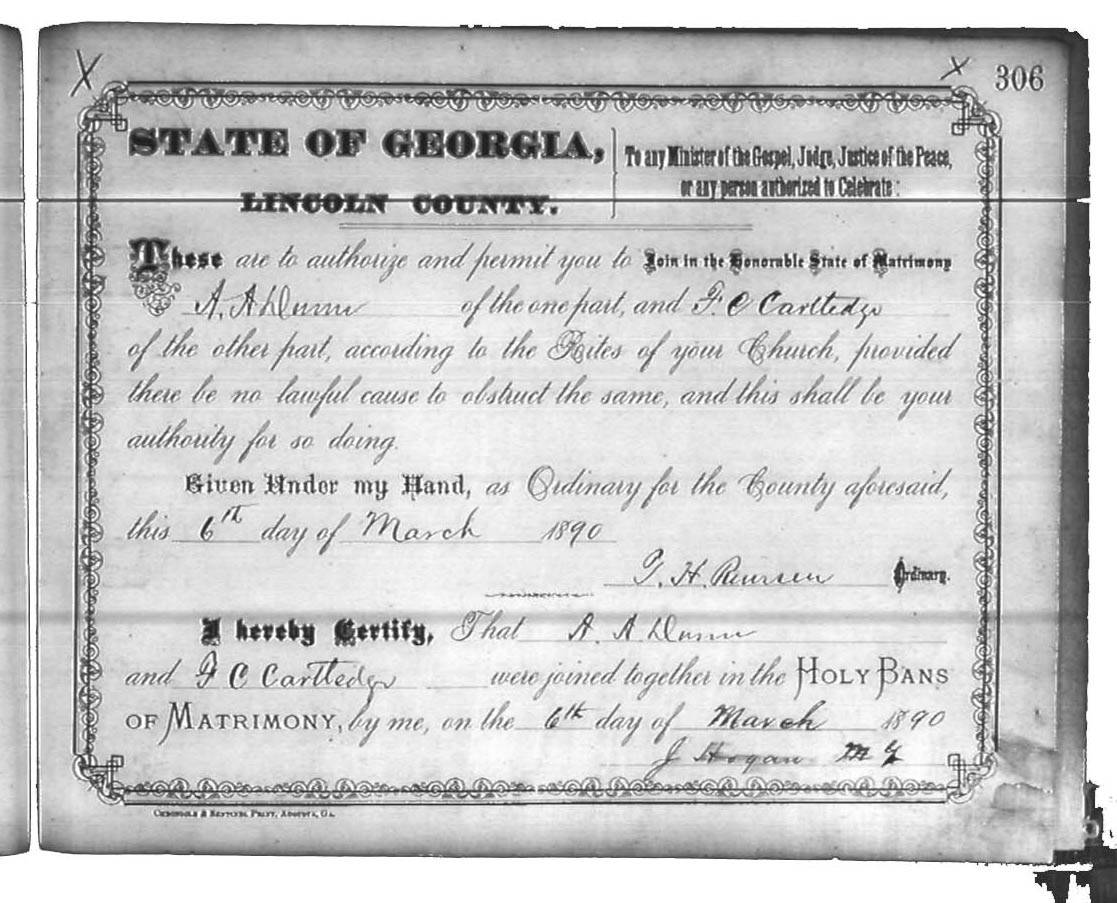 X X 306
STATE OF GEORGIA,
LINCOLN COUNTY.
To any Minister of the Gospel, Judge, Justice of the Peace,
or any person authorized to Celebrate:
These are to authorize and permit you to Join in the Honorable State of Matrimony
A. A Dunn of the one part, and F. C Cartledge
of the other part, according to the Rites of your Church, provided
there be no lawful cause to obstruct the same, and this shall be your
authority for so doing.
Given Under my Hand, as Ordinary for the County aforesaid,
this 6th day of March 1890
H. Ordinary.
I hereby Certify, That A. A. Dunn
and F C Cartledge were joined together in the HOLY BANS
OF MATRIMONY, by me, on the 6th day of March 1890
J Hogan M G
CHRONICLE & SENTINEL PRINT, AUGUSTA, GA.